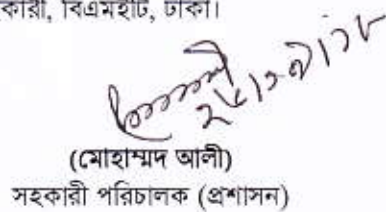 কারী, বিএমইটি, ঢাকা।
(মোহাম্মদ আলী)
সহকারী পরিচালক (প্রশাসন)